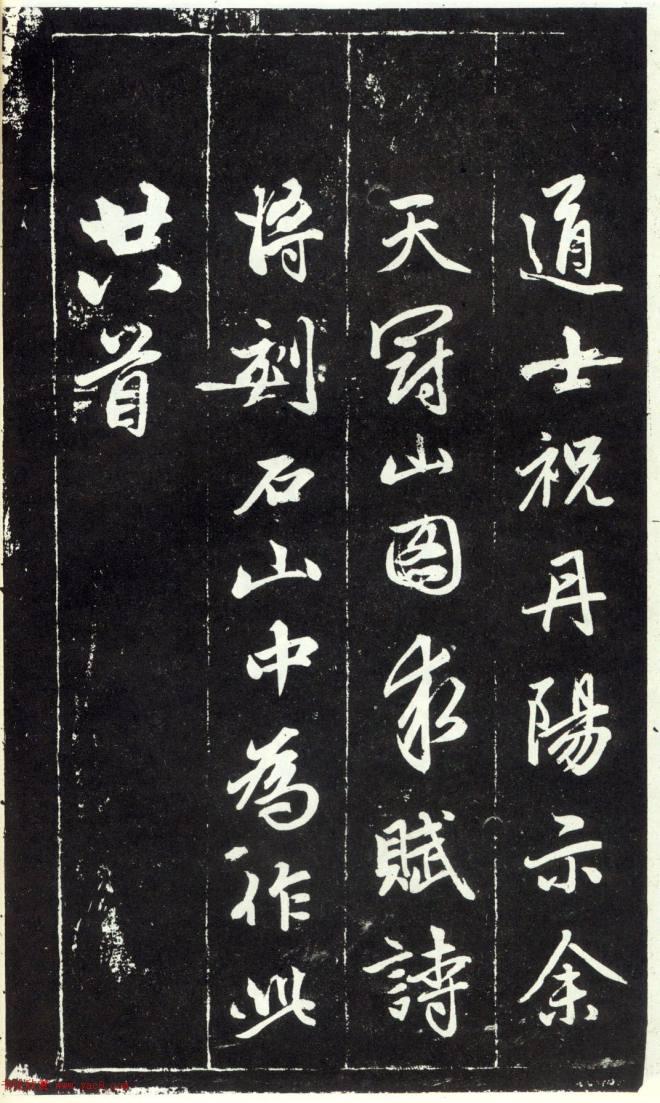 道士祝丹陽示余
天冠山图求賦詩
将刻石山中為作此
廿八首